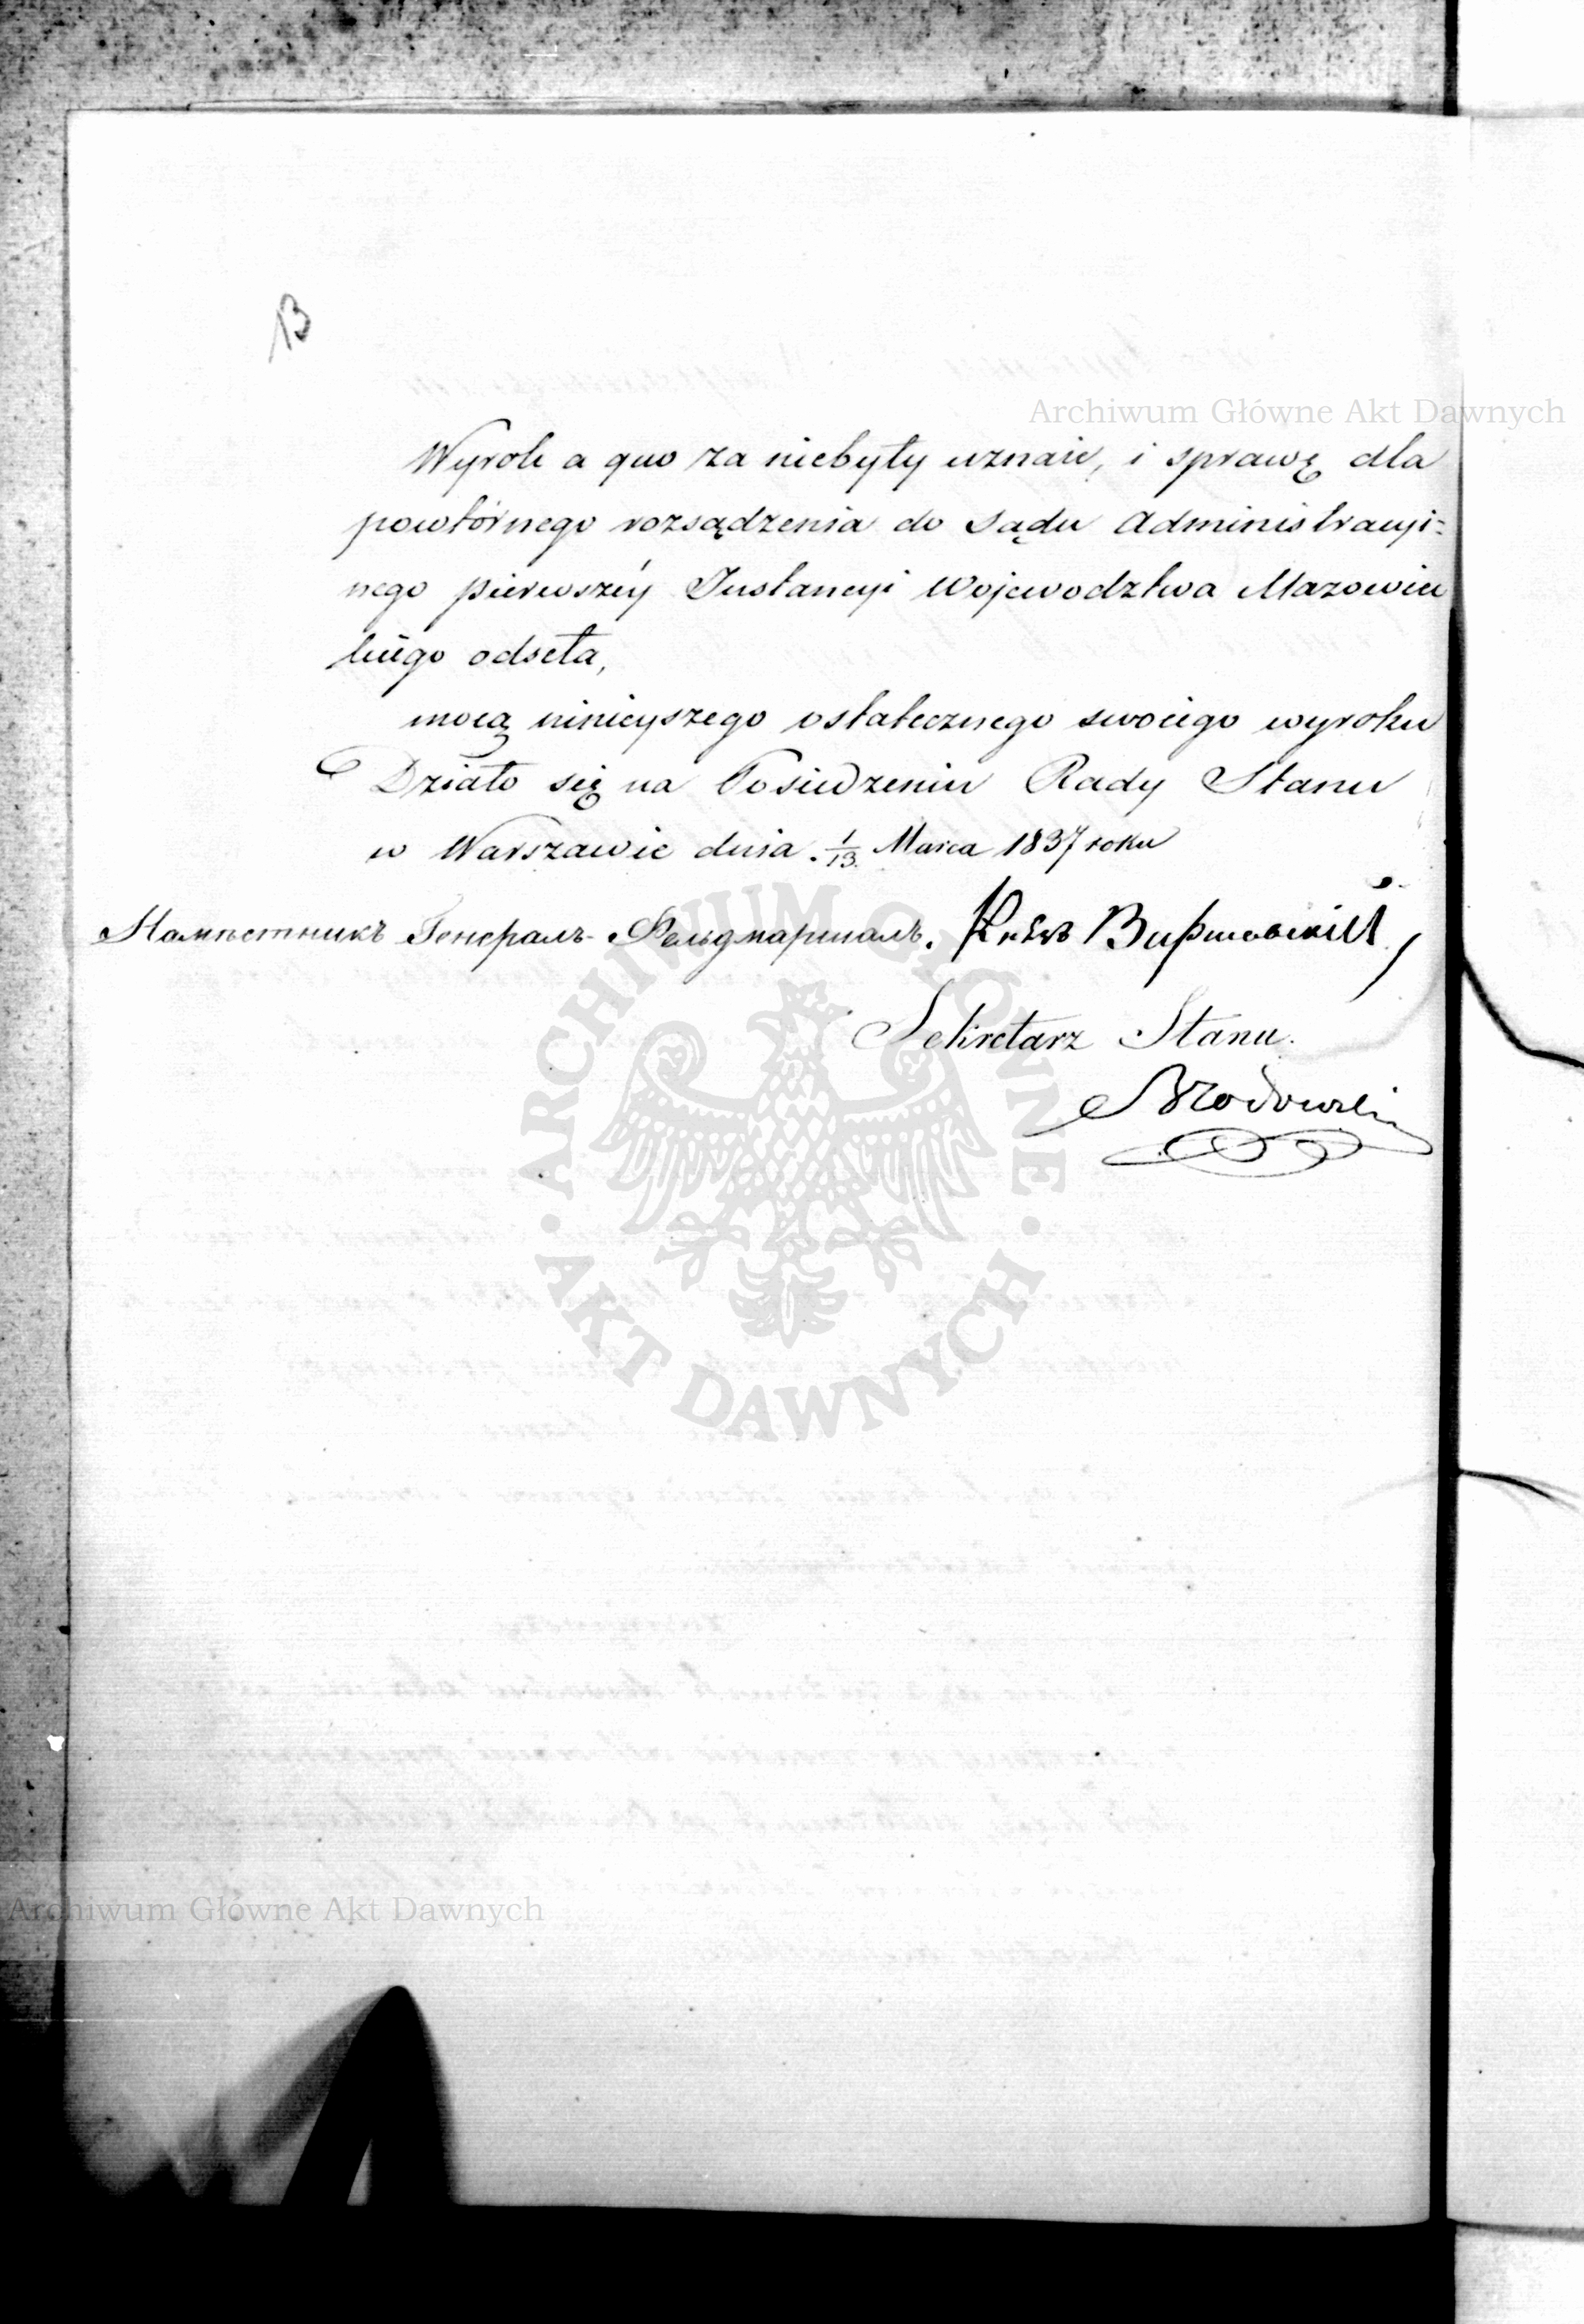 13
Archiwum Główne Akt Dawnych
Wyrok a quo za niebyły uznaie, i sprawę dla
powtórnego rozsądzenia do Sądu Administracyi=
nego pierwszéy Instancyi Województwa Mazowiec
kiego odseła,
mocą ninieyszego ostatecznego swoiego wyroku
Działo się na Posiedzeniu Rady Stanu
w Warszawie dnia 1/13 Marca 1837 roku
Намѣстникъ Генералъ-Фельдмаршалъ. Князь Варшавскій
Sekretarz Stanu.
Brodowski
ARCHIWUM GŁÓWNE · AKT DAWNYCH ·
Archiwum Główne Akt Dawnych